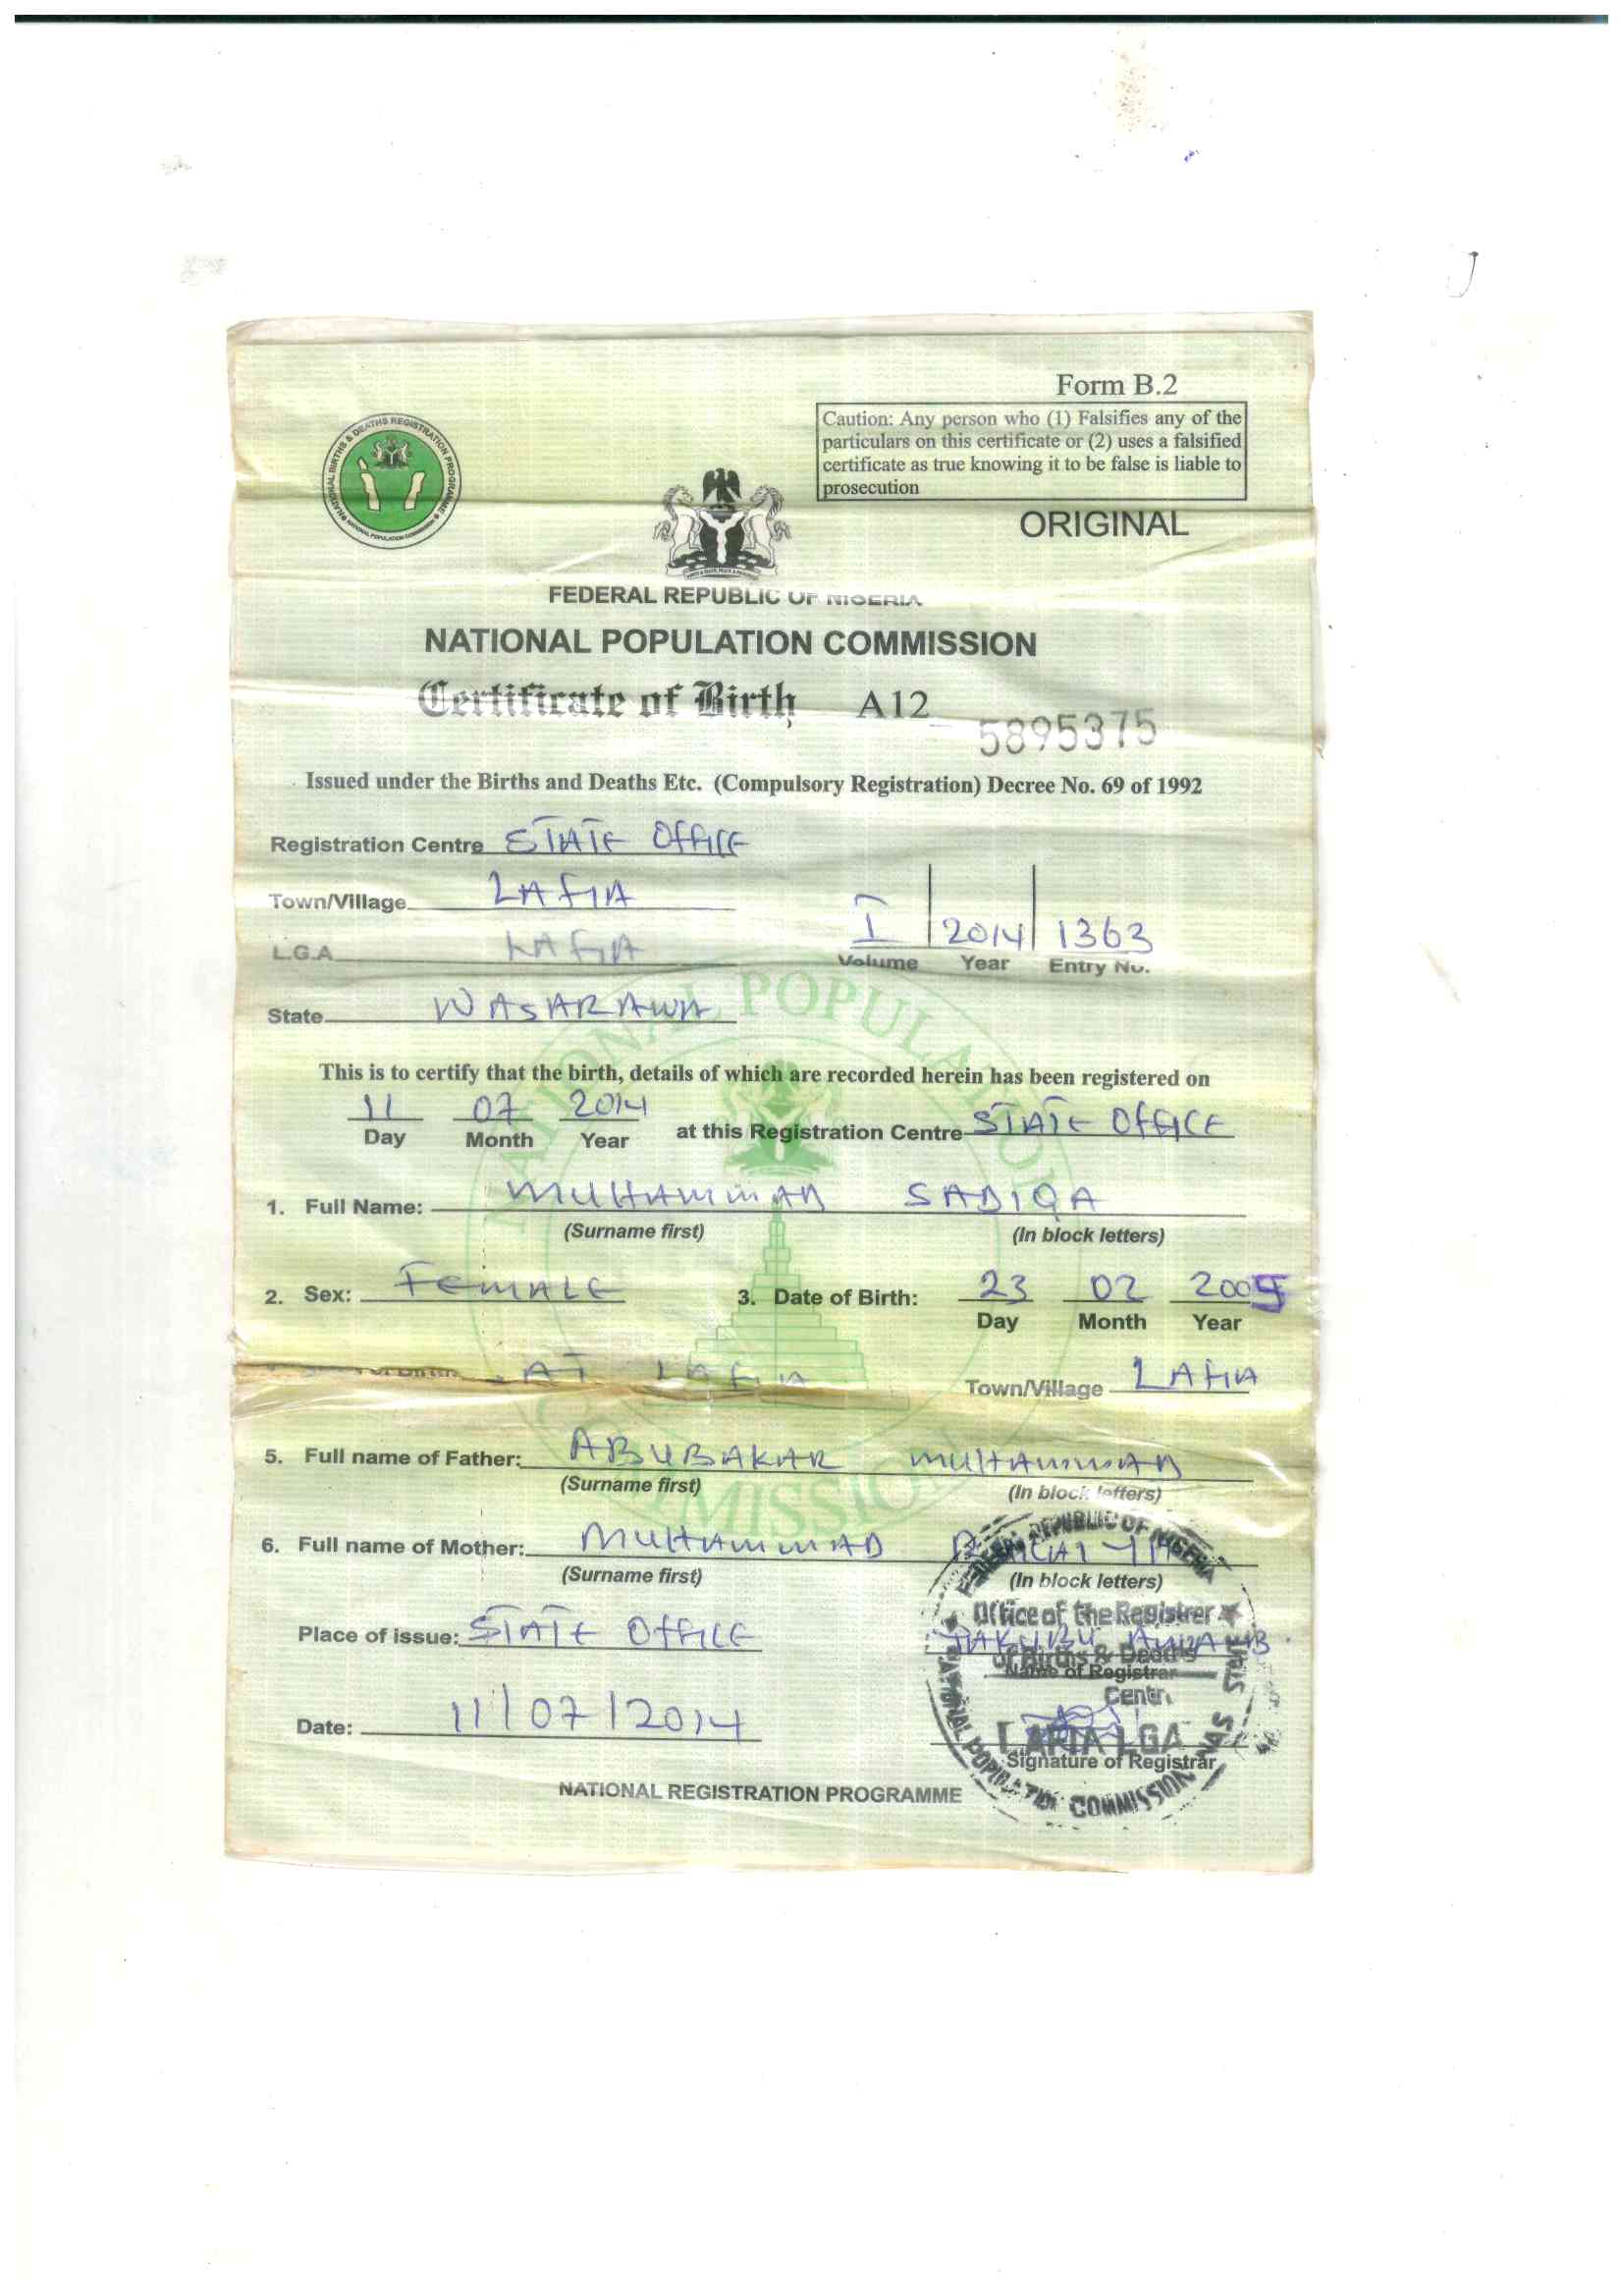 Form B.2
Caution: Any person who (1) Falsifies any of the
particulars on this certificate or (2) uses a falsified
certificate as true knowing it to be false is liable to
prosecution
NATIONAL BIRTHS & DEATHS REGISTRATION PROGRAMME
NATIONAL POPULATION COMMISSION
ORIGINAL
FEDERAL REPUBLIC OF NIGERIA
NATIONAL POPULATION COMMISSION
Certificate of Birth A12 5895375
Issued under the Births and Deaths Etc. (Compulsory Registration) Decree No. 69 of 1992
Registration Centre STATE OFFICE
Town/Village LAFIA
L.G.A LAFIA
I 2014 1363
Volume Year Entry No.
State NASARAWA
This is to certify that the birth, details of which are recorded herein has been registered on
11 07 2014 at this Registration Centre STATE OFFICE
Day Month Year
1. Full Name: MUHAMMAD SADIQA
(Surname first) (In block letters)
2. Sex: FEMALE 3. Date of Birth: 23 02 200
Day Month Year
of Birth AT LAFIA Town/Village LAFIA
5. Full name of Father: ABUBAKAR MUHAMMAD
(Surname first) (In block letters)
6. Full name of Mother: MUHAMMAD
(Surname first) (In block letters)
Place of issue: STATE OFFICE YAKUBU
Name of Registrar
Date: 11/07/2014
Signature of Registrar
NATIONAL REGISTRATION PROGRAMME
FEDERAL REPUBLIC OF NIGERIA
Office of the Registrer
of Births & Deaths
LGA
NATIONAL POPULATION COMMISSION
NATIONAL POPULATION COMMISSION